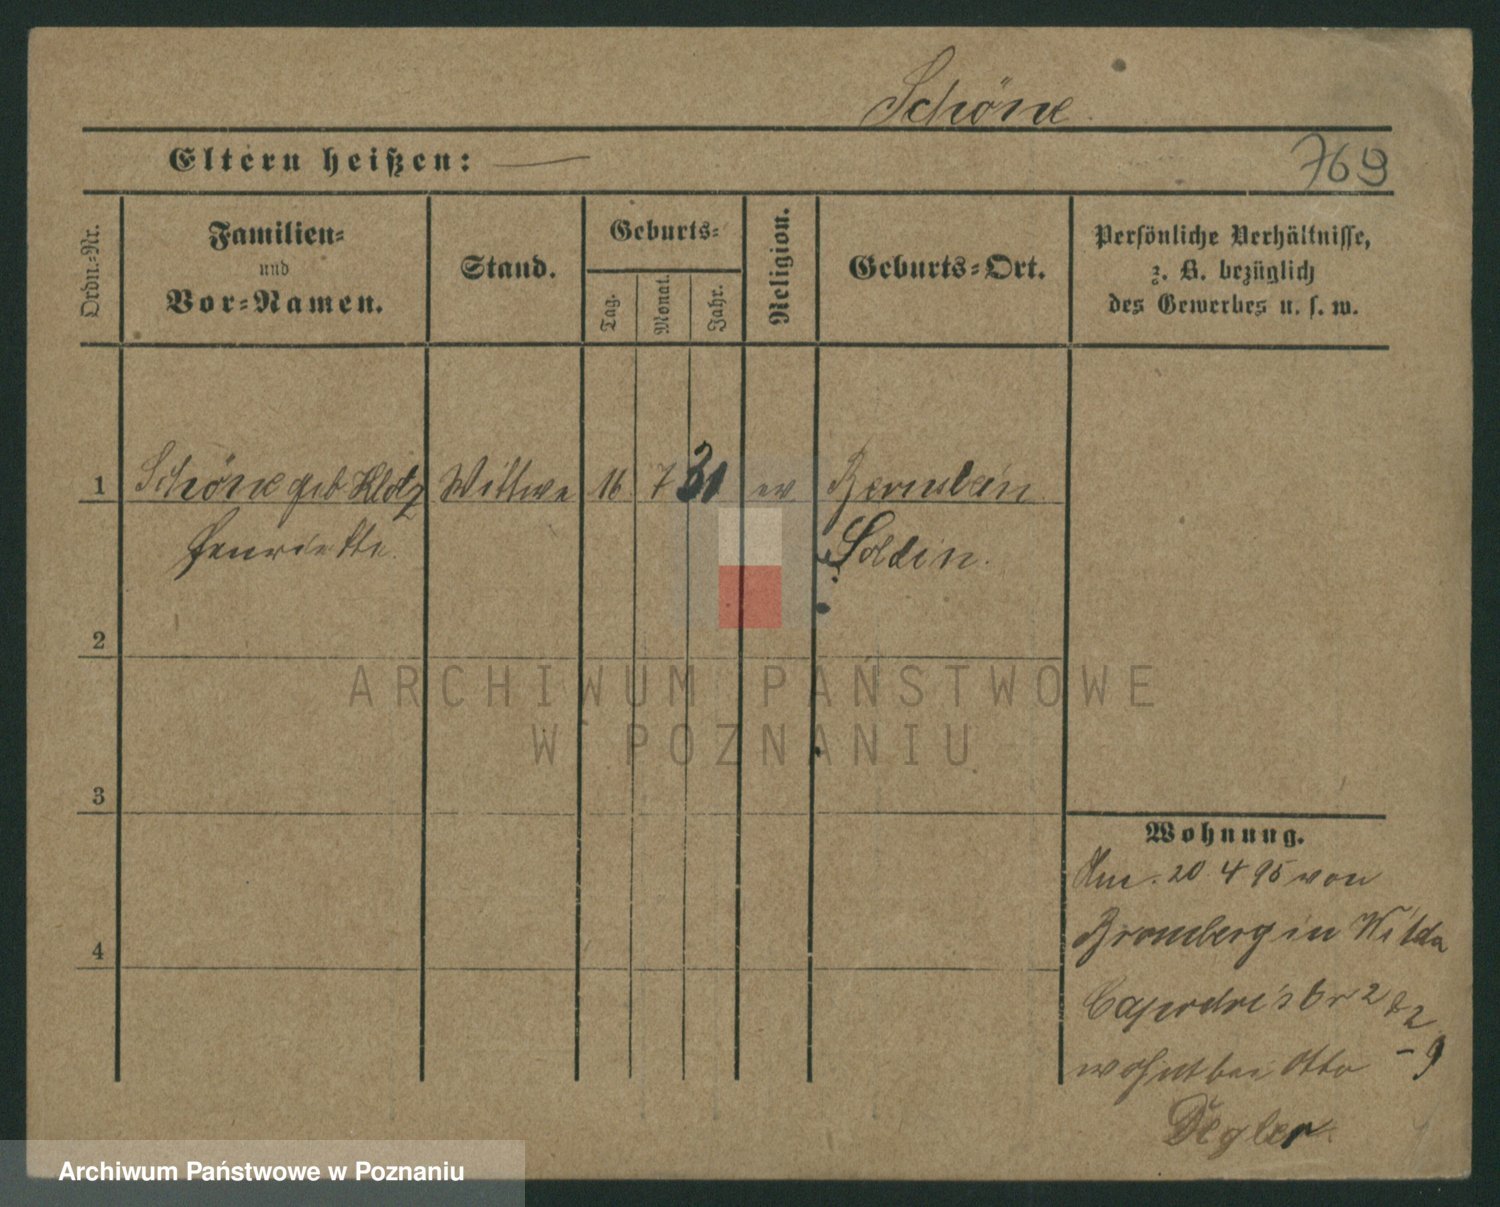 Schöne
Eltern heißen: —
769
Ordn.-Nr.
Familien-
und
Vor-Namen.
Stand.
Geburts-
Tag.
Monat.
Jahr.
Religion.
Geburts-Ort.
Persönliche Verhältnisse,
z. B. bezüglich
des Gewerbes u. s. w.
1 Schöne geb Klotz Wittwe 16 7 31 ev Bernstein
Henriette. Soldin.
2
3
4
ARCHIWUM PAŃSTWOWE
W POZNANIU
Wohnung.
20 4 95 von
Bromberg in Wilda
2
wohnt bei Otto
Degler
Archiwum Państwowe w Poznaniu